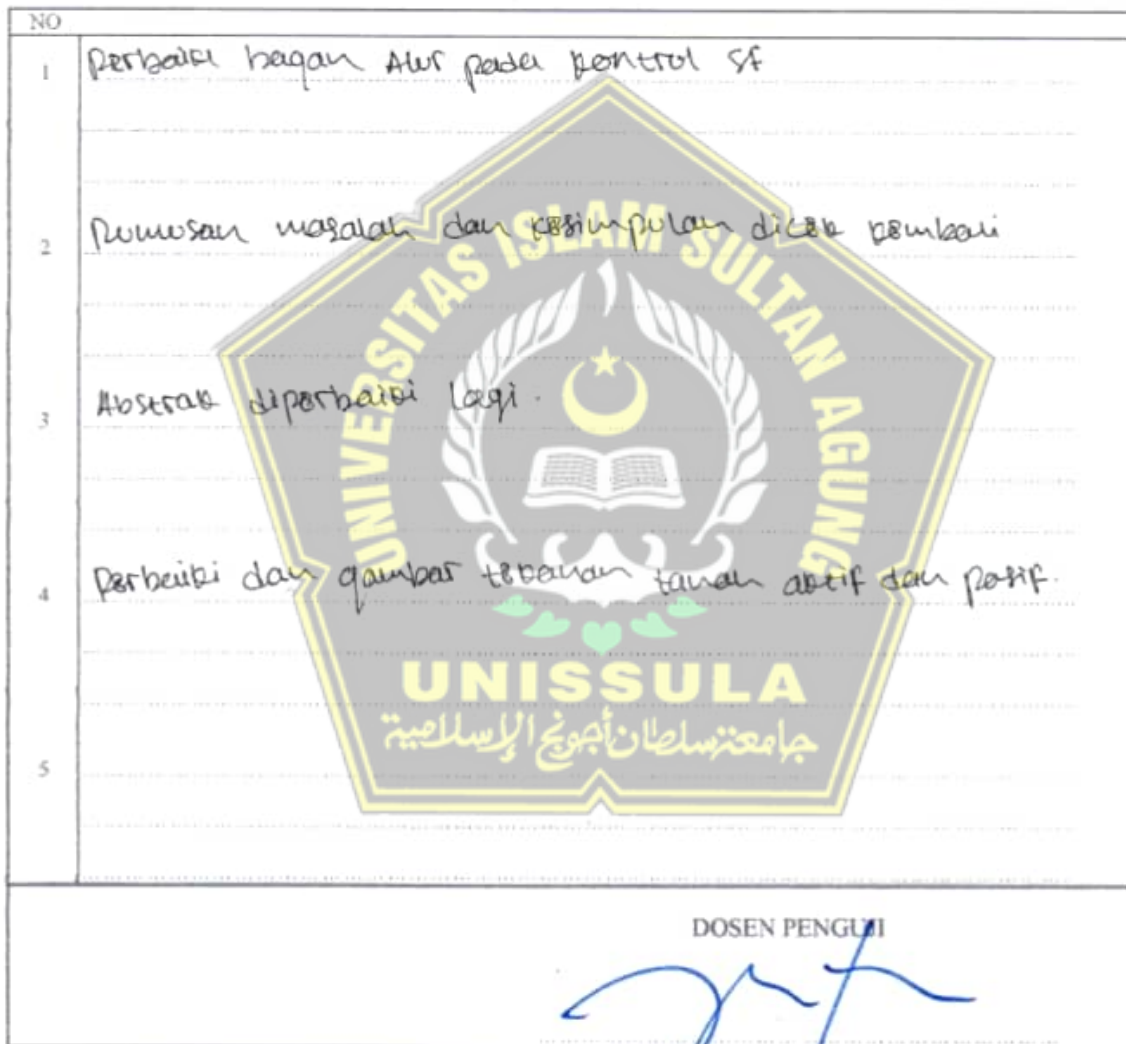 NO
1 Perbaiki bagan Alur pada kontrol SF
2 Rumusan masalah dan kesimpulan dicek kembali
3 Abstrak diperbaiki lagi.
4 Perbaiki dan gambar tekanan tanah aktif dan pasif.
5
UNIVERSITAS ISLAM SULTAN AGUNG
UNISSULA
جامعة سلطان أجونج الإسلامية
DOSEN PENGUJI